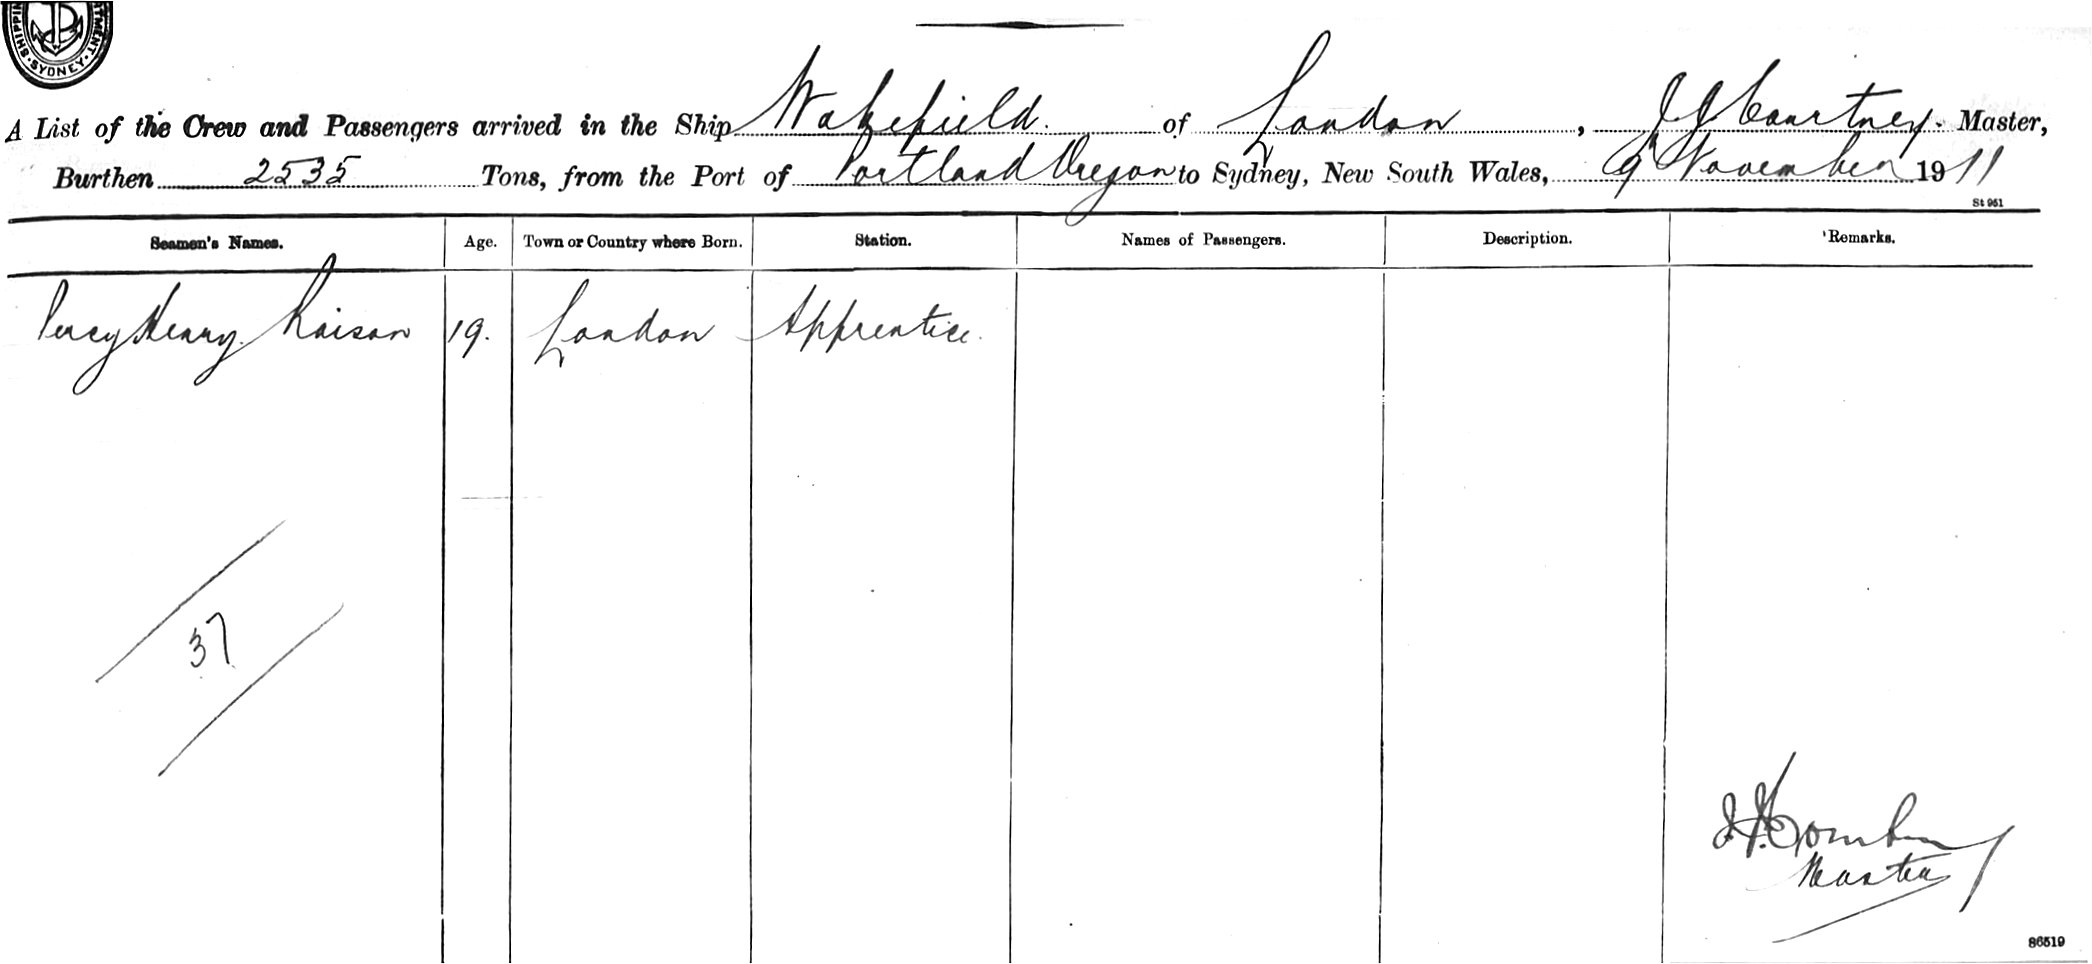 SHIPPI TMENT · SYDNEY ·
A List of the Crew and Passengers arrived in the Ship Wakefield. of London, J J Courtney. Master,
Burthen 2535 Tons, from the Port of Portland Oregon to Sydney, New South Wales, 9 November 1911
St 951
Seamen's Names. Age. Town or Country where Born. Station. Names of Passengers. Description. Remarks.
Percy Henry Raison 19. London Apprentice.
37
Master
86519